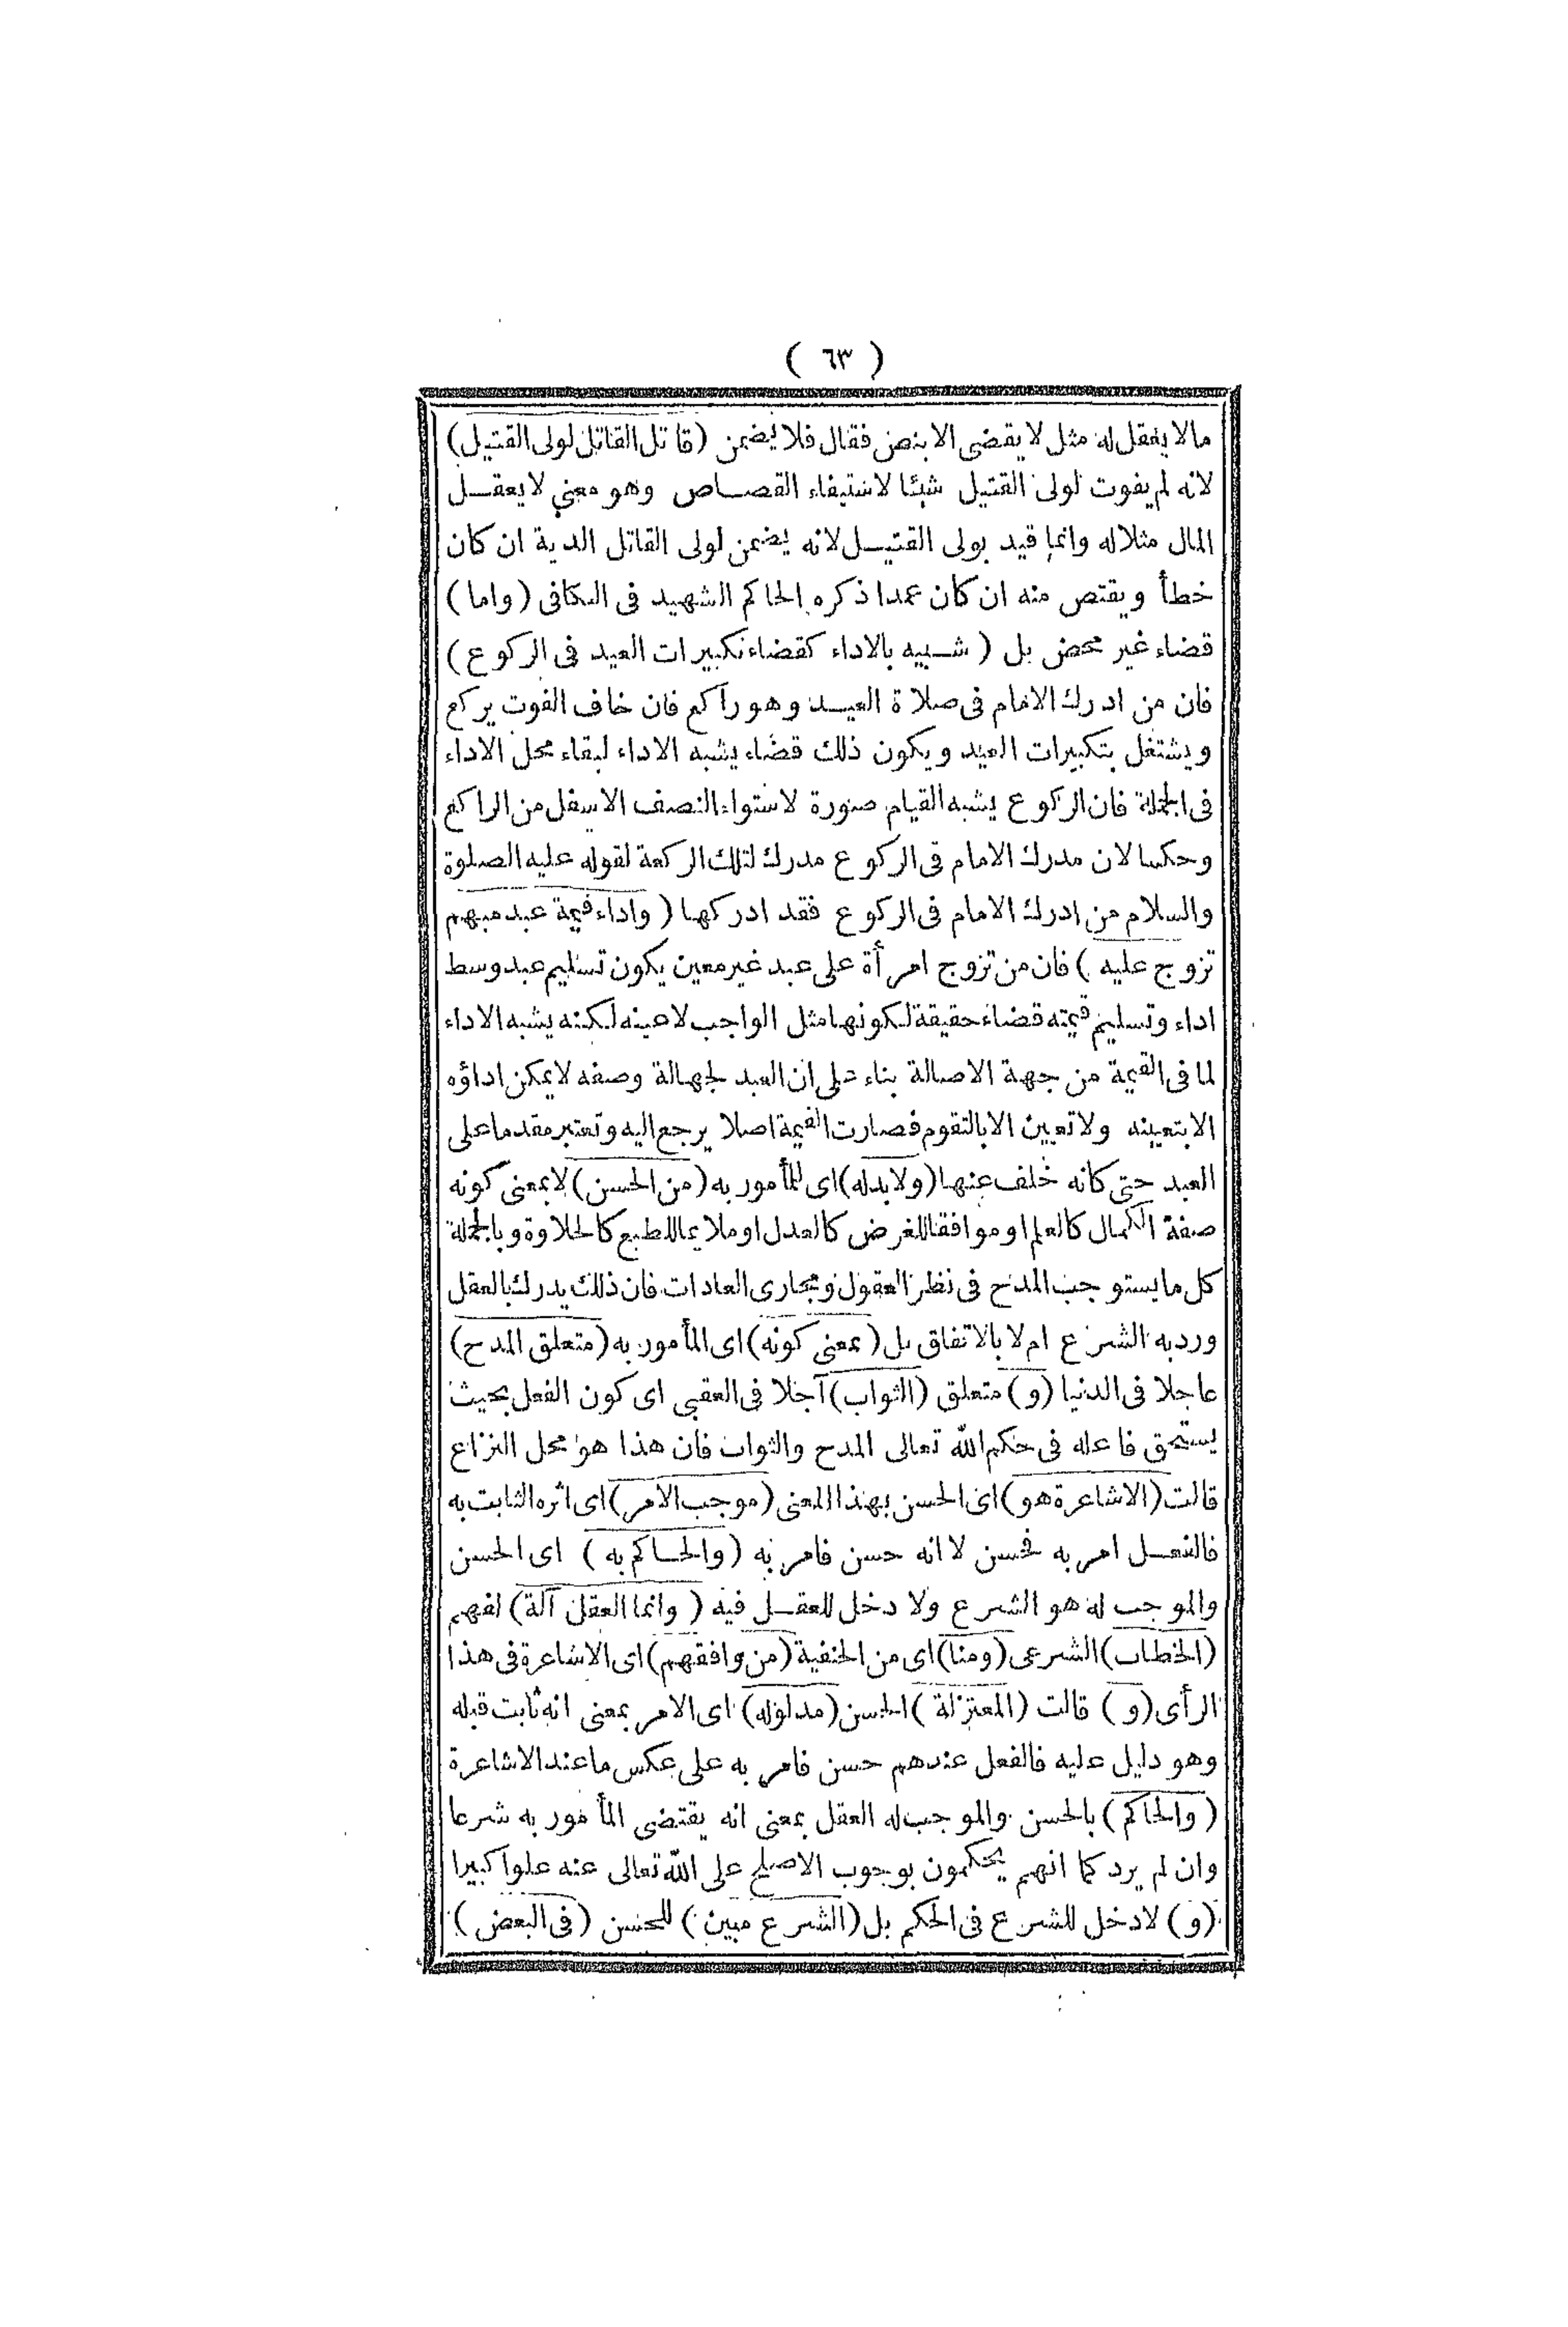 ( ٦٣ )
مالا يعقل له مثل لا يقضى الا بنص فقال فلا يضمن (قاتل القاتل لولى القتيل)
لانه لم يفوت لولى القتيل شيئا لاستيفاء القصاص وهو معنى لا يعقل
المال مثلا له وانما قيد بولى القتيل لانه يضمن لولى القاتل الدية ان كان
خطأ ويقتص منه ان كان عمدا ذكره الحاكم الشهيد فى الكافى (واما)
قضاء غير محض بل (شبيه بالاداء كقضاء تكبيرات العيد فى الركوع)
فان من ادرك الامام فى صلاة العيد وهو راكع فان خاف الفوت يركع
ويشتغل بتكبيرات العيد ويكون ذلك قضاء يشبه الاداء لبقاء محل الاداء
فى الجملة فان الركوع يشبه القيام صورة لاستواء النصف الاسفل من الراكع
وحكما لان مدرك الامام فى الركوع مدرك لتلك الركعة لقوله عليه الصلوة
والسلام من ادرك الامام فى الركوع فقد ادركها (واداء قيمة عبد مبهم
تزوج عليه) فان من تزوج امرأة على عبد غير معين يكون تسليم عبد وسط
اداء وتسليم قيمته قضاء حقيقة لكونها مثل الواجب لا عينه لكنه يشبه الاداء
لما فى القيمة من جهة الاصالة بناء على ان العبد لجهالة وصفه لا يمكن اداؤه
الا بتعيينه ولا تعيين الا بالتقوم فصارت القيمة اصلا يرجع اليه وتعتبر مقدما على
العبد حتى كانه خلف عنها (ولابدله) اى للمأمور به (من الحسن) لا بمعنى كونه
صفة الكمال كالعلم او موافقا للغرض كالعدل او ملايما للطبع كالحلاوة وبالجملة
كل ما يستوجب المدح فى نظر العقول ومجارى العادات فان ذلك يدرك بالعقل
ورد به الشرع ام لا بالاتفاق بل (بمعنى كونه) اى المأمور به (متعلق المدح)
عاجلا فى الدنيا (و) متعلق (الثواب) آجلا فى العقبى اى كون الفعل بحيث
يستحق فاعله فى حكم الله تعالى المدح والثواب فان هذا هو محل النزاع
قالت (الاشاعرة هو) اى الحسن بهذا المعنى (موجب الامر) اى اثره الثابت به
فالفعل امر به فحسن لا انه حسن فامر به (والحاكم به) اى الحسن
والموجب له هو الشرع ولا دخل للعقل فيه (وانما العقل آلة) لفهم
(الخطاب) الشرعى (ومنا) اى من الحنفية (من وافقهم) اى الاشاعرة فى هذا
الرأى (و) قالت (المعتزلة) الحسن (مدلوله) اى الامر بمعنى انه ثابت قبله
وهو دليل عليه فالفعل عندهم حسن فامر به على عكس ما عند الاشاعرة
(والحاكم) بالحسن والموجب له العقل بمعنى انه يقتضى المأمور به شرعا
وان لم يرد كما انهم يحكمون بوجوب الاصلح على الله تعالى عنه علوا كبيرا
(و) لا دخل للشرع فى الحكم بل (الشرع مبين) للحسن (فى البعض)